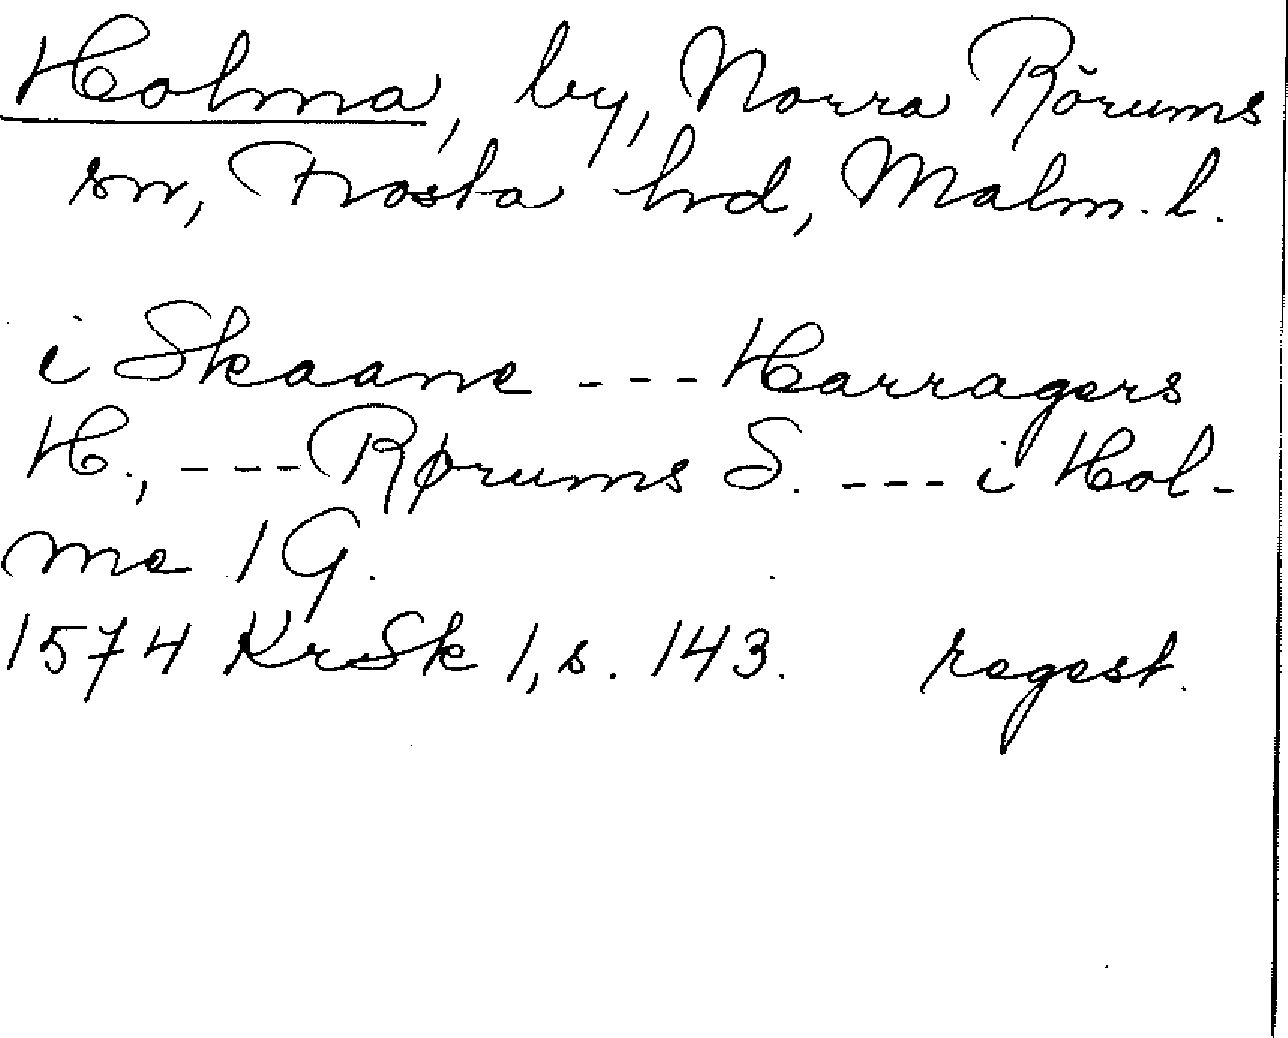 Holma, by, Norra Rörums
sn, Frosta hrd, Malm. l.
i Skaane --- Harragers
H., --- Rørums S. --- i Hol-
me 1 G.
1574 KrSk 1, s. 143. regest.